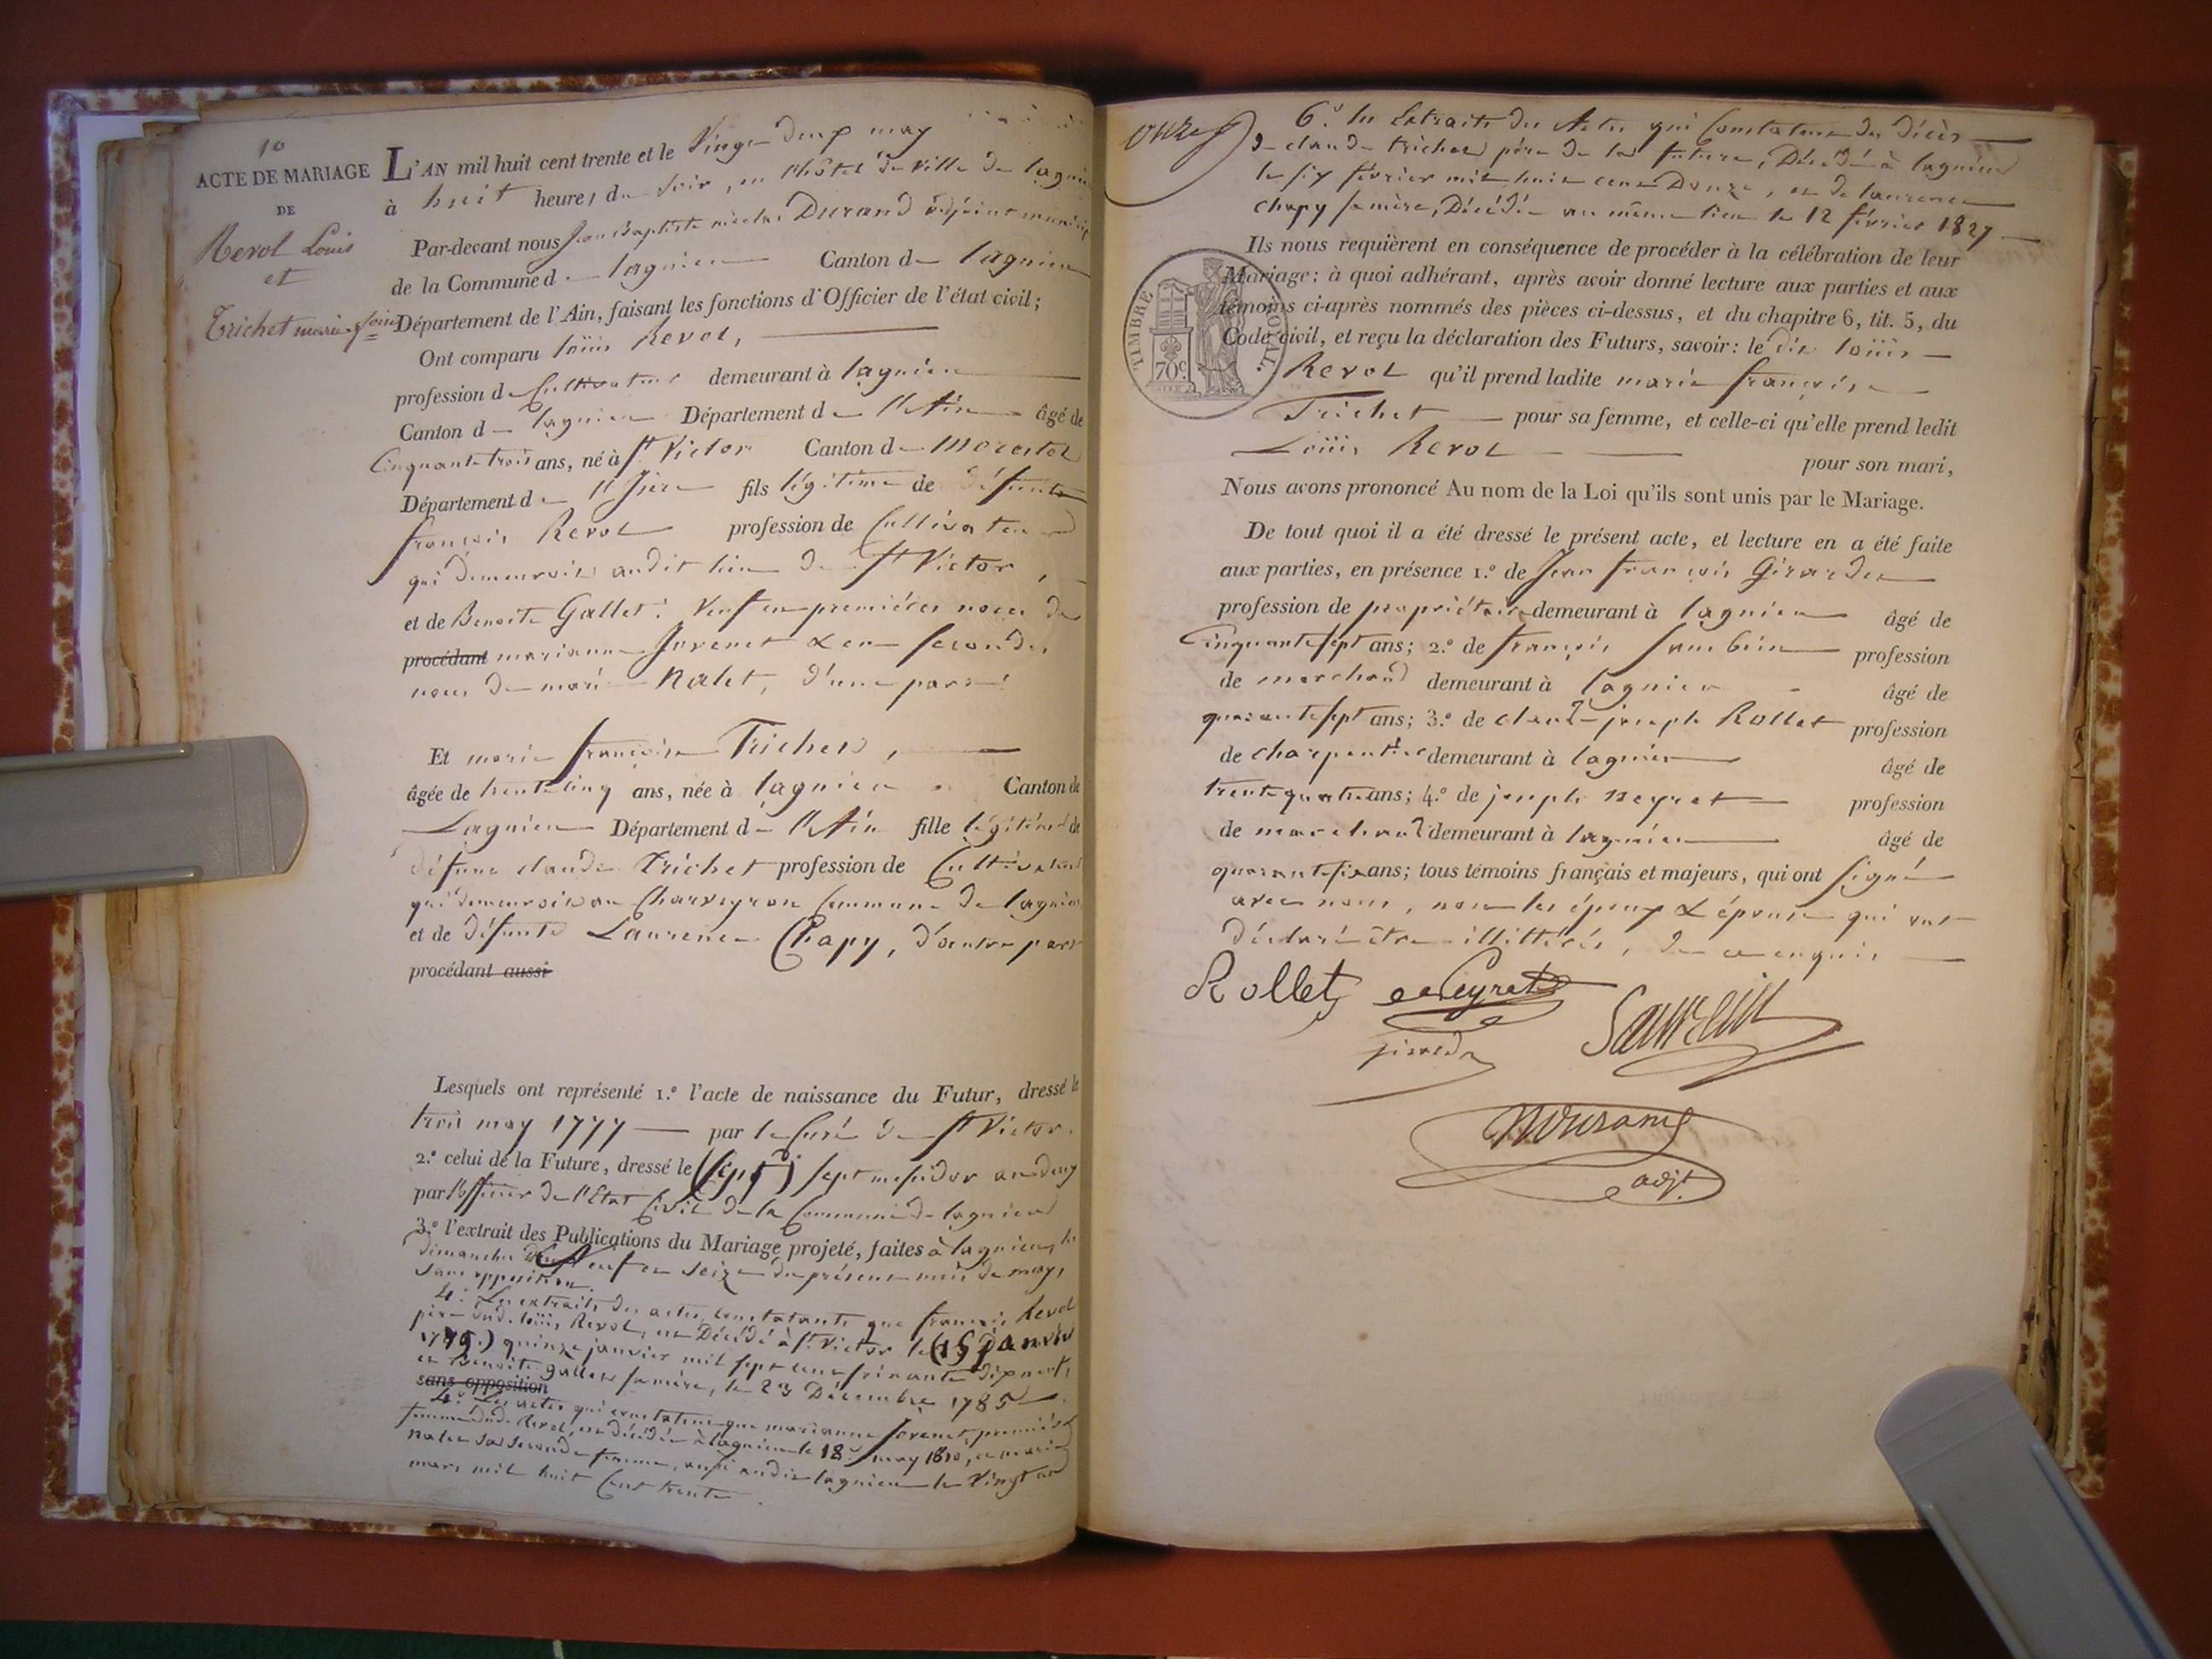 10
ACTE DE MARIAGE
DE
Revol Louis
et
Trichet marie fçoise
L'AN mil huit cent trente et le Vingt deux may
à huit heures du soir, en l'hôtel de Ville de lagnieu
Par-devant nous Jean Baptiste nicolas Durand adjoint municip
de la Commune d- lagnieu Canton d- lagnieu
Département de l'Ain, faisant les fonctions d'Officier de l'état civil;
Ont comparu loüis Revol,
profession de Cultivateur demeurant à lagnieu
Canton d- lagnieu Département de l'Ain âgé de
Cinquante trois ans, né à St Victor Canton de Morestel
Département de l'Isère fils légitime de défunts
françois Revol profession de Cultivateur
qui demeuroit audit lieu de St Victor,
et de Benoite Gallet. Veuf en premières noces de
procédant marianne Juvenet & en secondes
noces de marie Nalet, d'une part.
Et marie françoise Trichet,
âgée de trente cinq ans, née à lagnieu Canton de
Lagnieu Département de l'Ain fille légitime de
défunt claude Trichet profession de Cultivateur
qui demeuroit au Charveyron Commune de lagnieu
et de défunte Laurence Chapy, d'autre part
procédant aussi
Lesquels ont représenté 1.º l'acte de naissance du Futur, dressé le
trois may 1777 par le Curé de St Victor.
2.º celui de la Future, dressé le (sept) sept messidor an deux
par l'officier de l'Etat Civil de la Commune de lagnieu
3.º l'extrait des Publications du Mariage projeté, faites à lagnieu, les
dimanches neuf et seize du présent mois de may,
sans opposition.
4.º Les extraits des actes constatants que françois Revol
père dud. loüis Revol, est Décédé à St Victor le (15 Janvier
1779.) quinze janvier mil sept cent soixante dix neuf,
et Benoite gallet sa mère, le 23 Décembre 1785
sans opposition
4.º Les actes qui constatent que marianne Juvenet première
femme dud. Revol, est décédée à lagnieu le 18 may 1810, et marie
nalet sa seconde femme, aussi audit lagnieu le Vingt un
mars mil huit Cent trente.
onze
6.º les Extraits des Actes qui Constatent les décès
de claude trichet père de la future, Décédé à lagnieu
le six février mil huit cent Douze, et de laurence
chapy sa mère, Décédée au même lieu le 12 février 1827
Ils nous requièrent en conséquence de procéder à la célébration de leur
Mariage: à quoi adhérant, après avoir donné lecture aux parties et aux
témoins ci-après nommés des pièces ci-dessus, et du chapitre 6, tit. 5, du
Code civil, et reçu la déclaration des Futurs, savoir: le dit loüis
TIMBRE ROYAL.
70c
Revol qu'il prend ladite marie françoise
Trichet pour sa femme, et celle-ci qu'elle prend ledit
Loüis Revol pour son mari,
Nous avons prononcé Au nom de la Loi qu'ils sont unis par le Mariage.
De tout quoi il a été dressé le présent acte, et lecture en a été faite
aux parties, en présence 1.º de Jean françois Girardet
profession de propriétaire demeurant à lagnieu âgé de
Cinquante sept ans; 2.º de françois profession
de marchand demeurant à lagnieu âgé de
quarante sept ans; 3.º de claude joseph Rollet profession
de charpentier demeurant à lagnieu âgé de
trente quatre ans; 4.º de joseph neyret profession
de marchand demeurant à lagnieu âgé de
quarante six ans; tous témoins français et majeurs, qui ont signé
avec nous, non les époux & épouse qui ont
déclaré être illittérés, de ce enquis
Rollet Neyret
adjt.